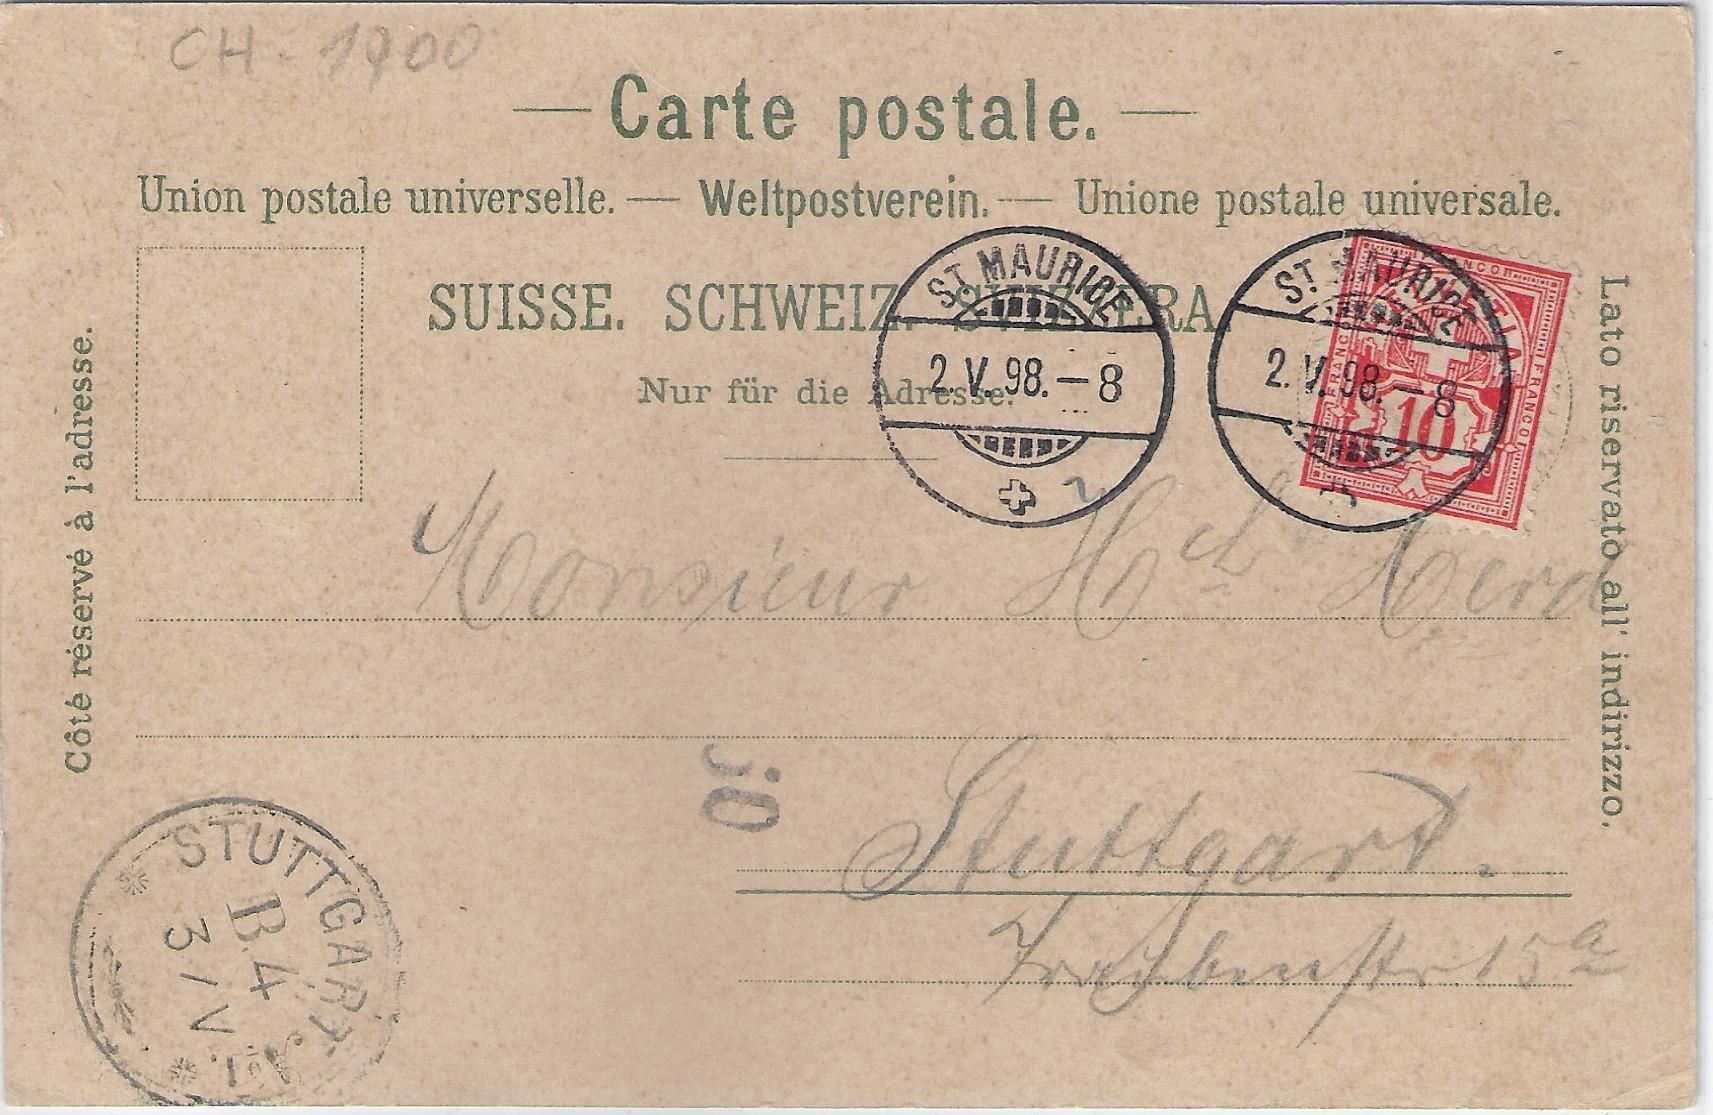 CH - 1900
— Carte postale. —
Union postale universelle. — Weltpostverein. — Unione postale universale.
SUISSE. SCHWEIZ. SVIZZERA
Nur für die Adresse.
Côté réservé à l'adresse.
Lato riservato all' indirizzo.
ST. MAURICE
2. V. 98. – 8
ST. MAURICE
2. V. 98. – 8
FRANCO
10
Monsieur Hch. Herd
Stuttgart.
15a
STUTTGART
B.4
3 / V